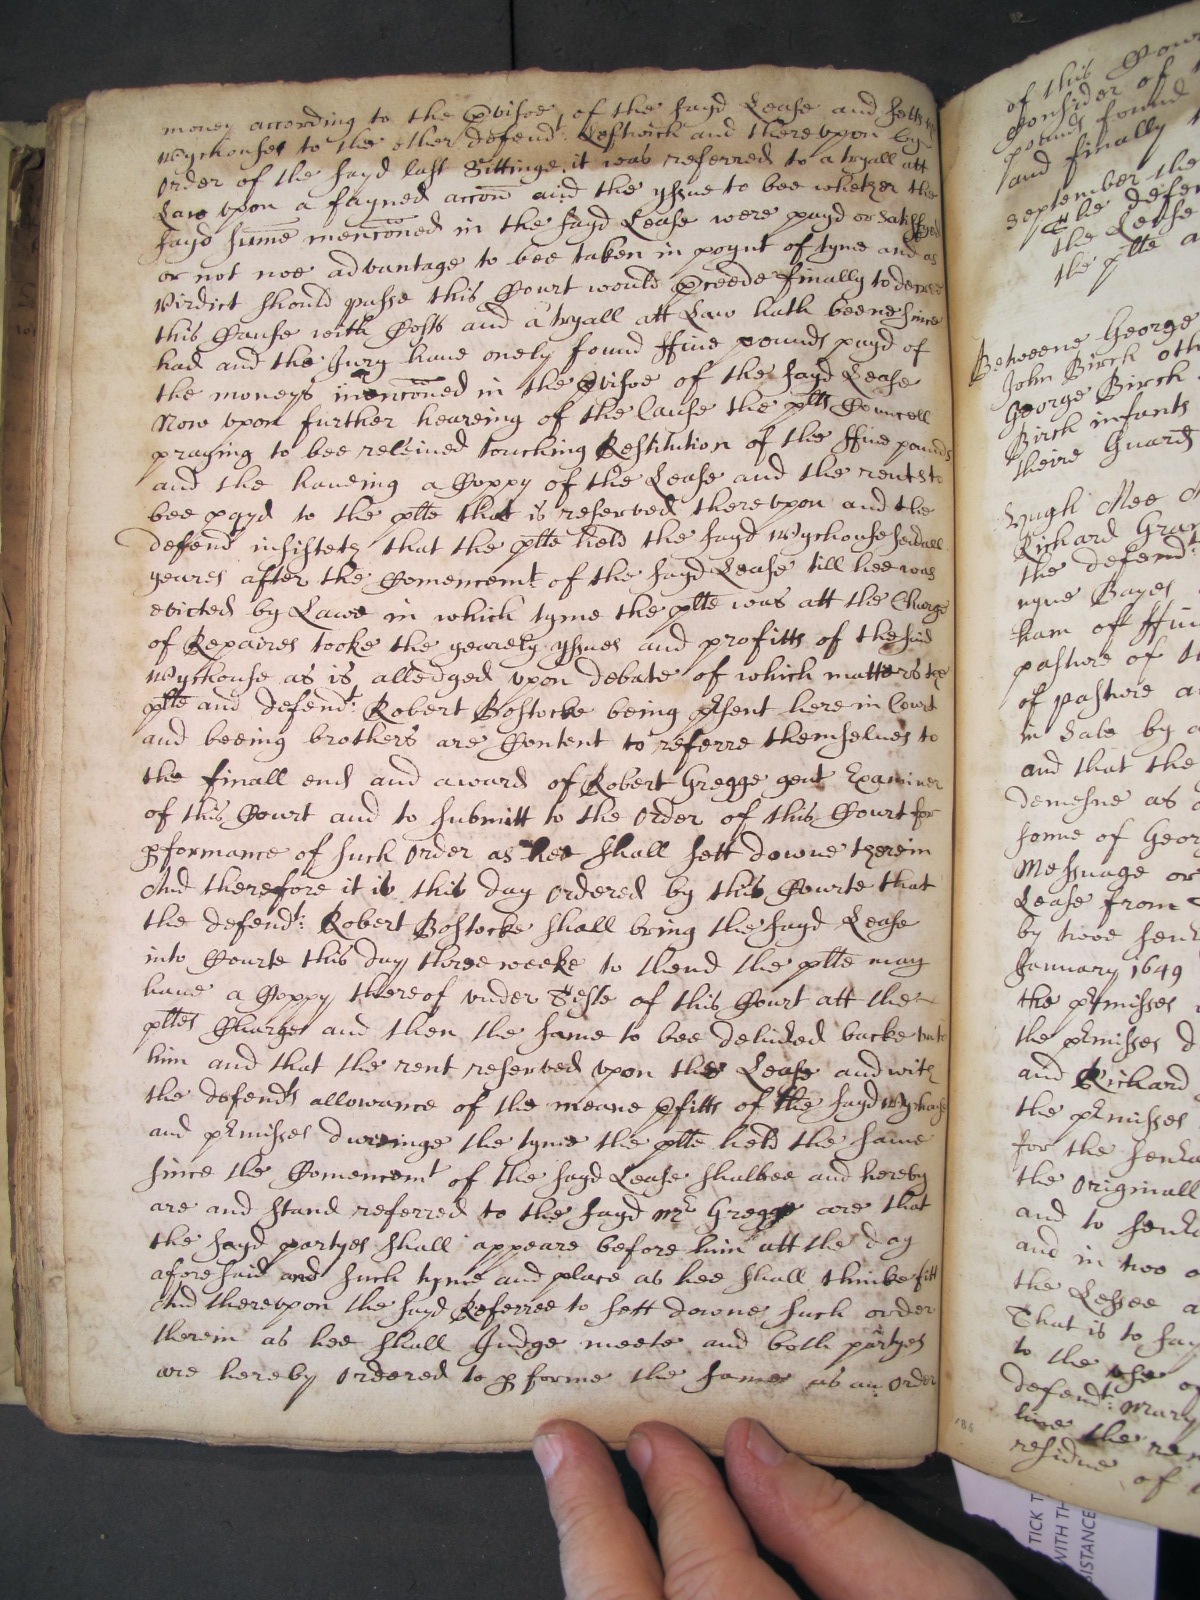 money according to the pvisoe of the sayd Lease and setts
wychouses to the other defend: Leftwich and thereupon by
order of the sayd last Sittinge it was referred to a tryall att
Law vpon a fayned accon and the yssue to bee whether the
sayd sume menconed in the sayd Lease were payd or satisfyed
or not noe advantage to bee taken in poynt of tyme and as
Virdict should passe this Court would pceede finally to decree
this Cause with Costs and a tryall att Law hath beene since
had and the Jury have onely found ffive pounds payd of
the moneys menconed in the pvisoe of the sayd Lease
Now vpon further heareing of the Cause the plts Councell
praying to bee releived touching Restitution of the ffive pounds
and the haveing a Coppy of the Lease and the rents to
bee payd to the plte that is reserved thereupon and the
defend insisteth that the plte held the sayd wychouse seuall
yeares after the Comencemt of the sayd Lease till hee was
evicted by Lawe in which tyme the plte was att the Charge
of Repaires tooke the yearely yssues and profitts of the said
wychouse as is alledged vpon debate of which matters the
plte and defendt: Robert Bostocke being psent here in Court
and beeing brothers are Content to referre themselues to
the finall end and award of Robert Gregge gent Examiner
of this Court and to submitt to the order of this Court for
pformance of such order as hee shall sett downe therein
And therefore it is this day ordered by this Courte that
the defendt: Robert Bostocke shall bring the sayd Lease
into Courte this day three weeke to thend the plte may
have a Coppy thereof vnder Seale of this Court att the
pltes Charges and then the same to bee deliued backe vnto
him and that the rent reserved vpon the Lease and with
the defendts allowance of the meane pfitts of the sayd wychouse
and pmisses dureinge the tyme the plte held the same
since the Comencemt of the sayd Lease shalbee and hereby
are and stand referred to the sayd mr Gregge are that
the sayd partyes shall appeare before him att the day
aforesaid and such tyme and place as hee shall thinke fitt
And thereupon the sayd Referree to sett downe such order
therein as hee shall Judge meete and both partyes
are hereby ordered to pforme the same as an order
of this Cour
Consider of
pounds found
and finally
September the
the defen
the Lease
the plte a
Betweene George
John Birch oth
George Birch
Birch infants
theire Guard
Hugh Mee
Richard Gra
the defendt
Bayes
ham of ffi
pasture of
of pasture a
in Sale by
and that the
demesne as
sonne of Geor
Messuage or
Lease from
by twoe seu
January 1649
the pmisses
the pmisses
and Richard
the pmisses
for the seu
the originall
and to seu
and in two
the Lessee a
That is to say
to the use of
defendt: Mary
the re
residue of
186
TICK T
WITH TH
DISTANCE